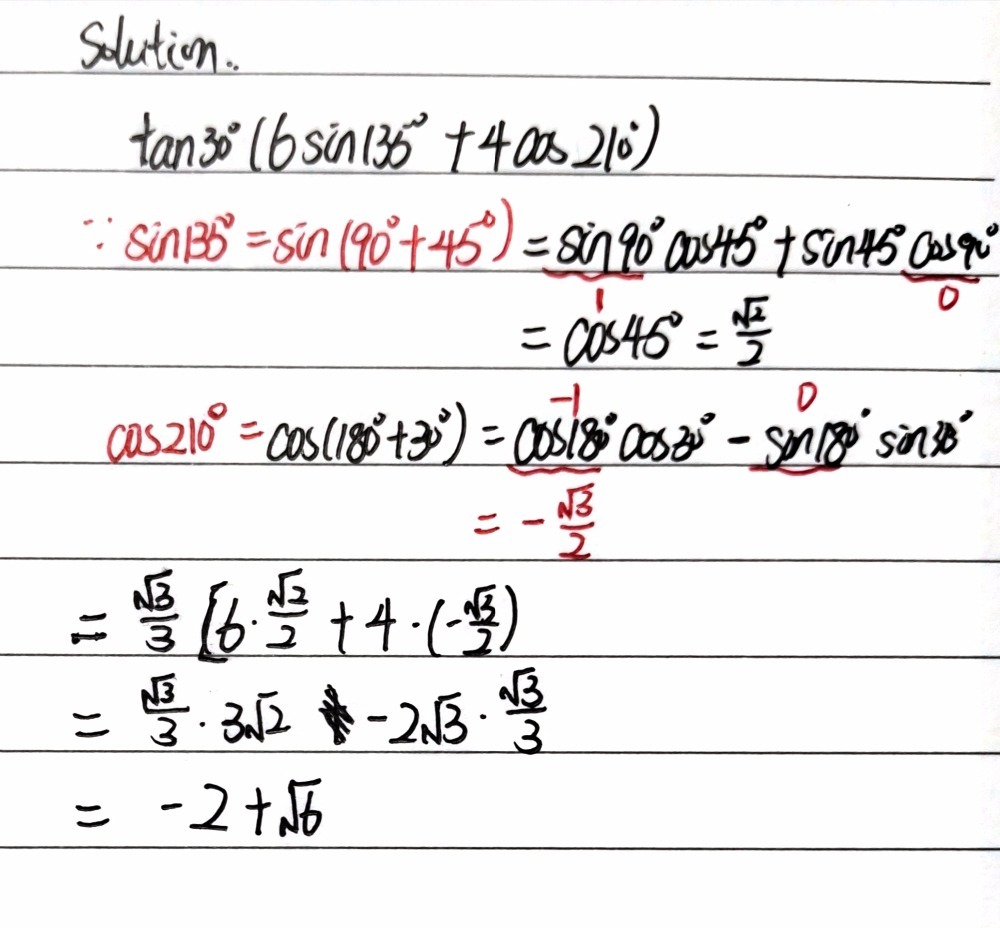 Solution.
tan30°(6sin135° + 4cos210°)
∵ sin135° = sin(90°+45°) = sin90° cos45° + sin45° cos90°
1 0
= cos45° = √2/2
-1 0
cos210° = cos(180°+30°) = cos180° cos30° - sin180° sin30°
= -√3/2
= √3/3 [6·√2/2 + 4·(-√3/2)
= √3/3 · 3√2 - 2√3 · √3/3
= -2+√6